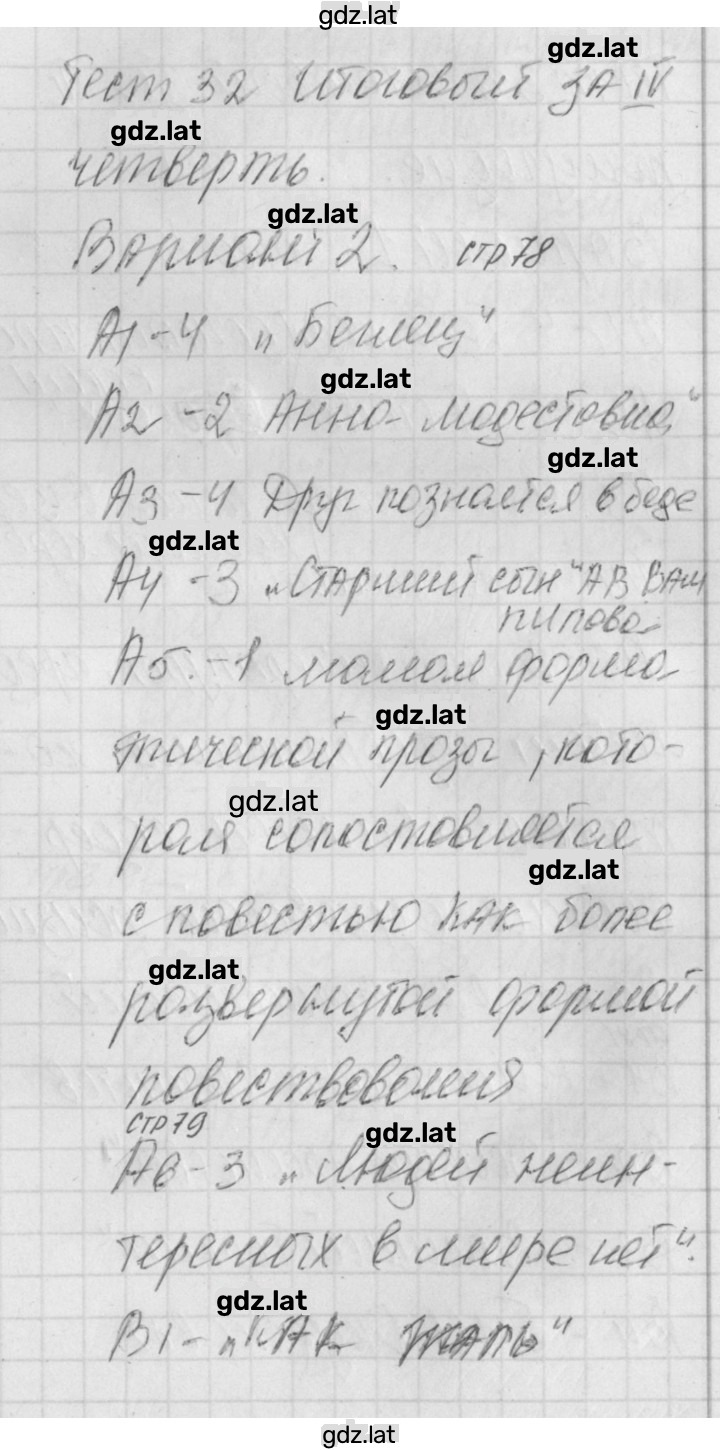 gdz.lat
gdz.lat
Тест 32 Итоговый за IV
gdz.lat
четверть.
gdz.lat
Вариант 2. стр 78
А1-4 „Беглец"
gdz.lat
А2 -2 Анна Модестовна"
gdz.lat
А3 -4 Друг познается в беде
gdz.lat
А4 -3 „Старший сын" АВ Вам
пилова
А5.-1 малая форма
gdz.lat
эпической прозы, кото-
gdz.lat
рая сопоставляется
gdz.lat
с повестью как более
gdz.lat
развернутой формой
повествования
стр 79
gdz.lat
А6-3 „Людей неин-
тересных в мире нет".
gdz.lat
В1- „Как жаль"
gdz.lat